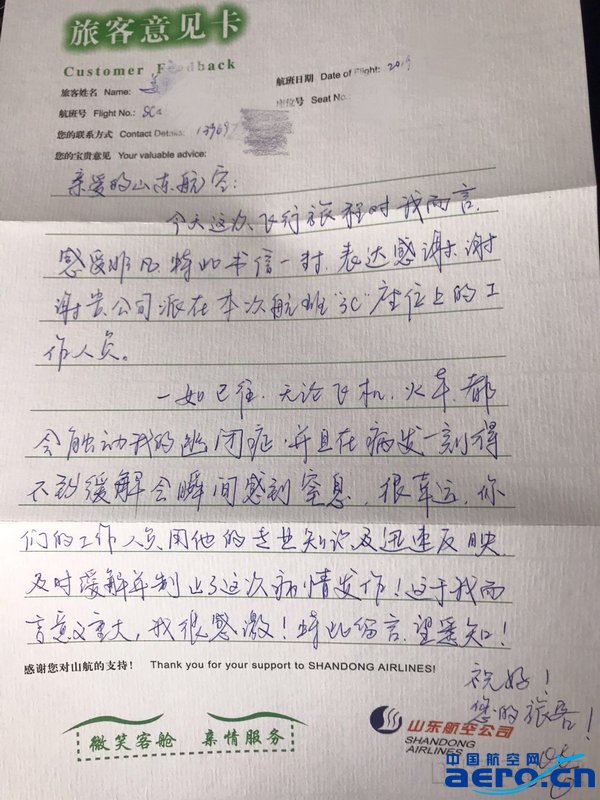 旅客意见卡
Customer Feedback
旅客姓名 Name: 姜
航班日期 Date of Flight: 2019
航班号 Flight No.: SC4
座位号 Seat No.:
您的联系方式 Contact Details: 13969
您的宝贵意见 Your valuable advice:
亲爱的山东航空:
今天这次飞行旅程对我而言,
感受非凡,特此书信一封,表达感谢,谢
谢贵公司派在本次航班"3C"座位上的工
作人员。
一如已往,无论飞机,火车,都
会触动我的幽闭症,并且在病发一刻得
不到缓解会瞬间感到窒息,很幸运,你
们的工作人员,用他的专业知识,及迅速反映,
及时缓解并制止了这次病情发作!这于我而
言意义重大,我很感激!特此留言,望悉知!
感谢您对山航的支持! Thank you for your support to SHANDONG AIRLINES!
祝好!
您的旅客!
微笑客舱 亲情服务
山东航空公司
SHANDONG
AIRLINES
中国航空网
aero.cn